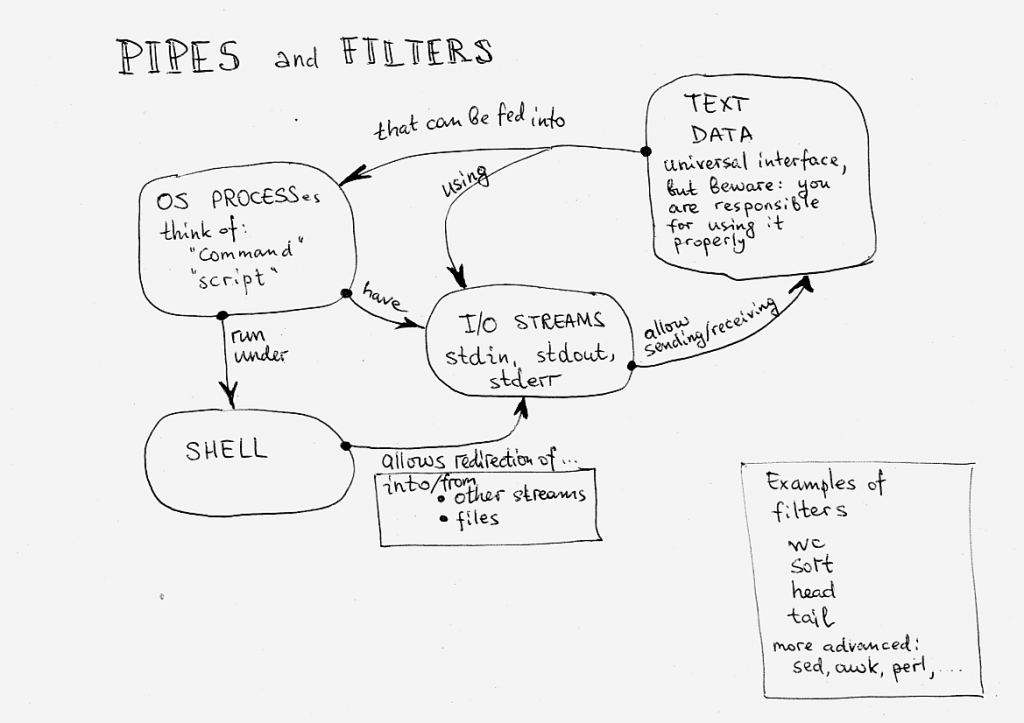 PIPES and FILTERS
that can be fed into
using
TEXT
DATA
universal interface,
but Beware: you
are responsible
for using it
properly
OS PROCESSes
think of:
"command"
"script"
have
run
under
I/O STREAMS
stdin, stdout,
stderr
allow
sending/receiving
SHELL
allows redirection of...
into/from
• other streams
• files
Examples of
filters
wc
sort
head
tail
more advanced:
sed, awk, perl, ....